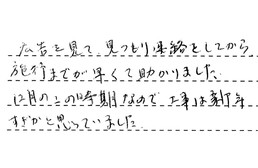 広告を見て、見つもり連絡をしてから
施行までが早くて助かりました。
12月のこの時期なので工事は新年
すぎかと思っていました。